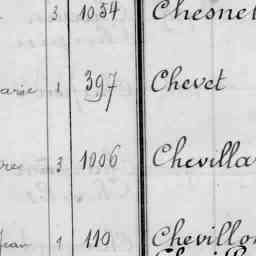 3 1054 Chesnet
arie 1 397 Chevet
re 3 1006 Chevilla
Jean 1 110 Chevillon